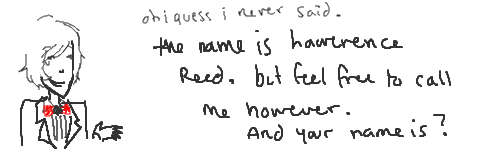 oh i guess i never said.
the name is Lawerence
Reed. but feel free to call
me however.
And your name is?